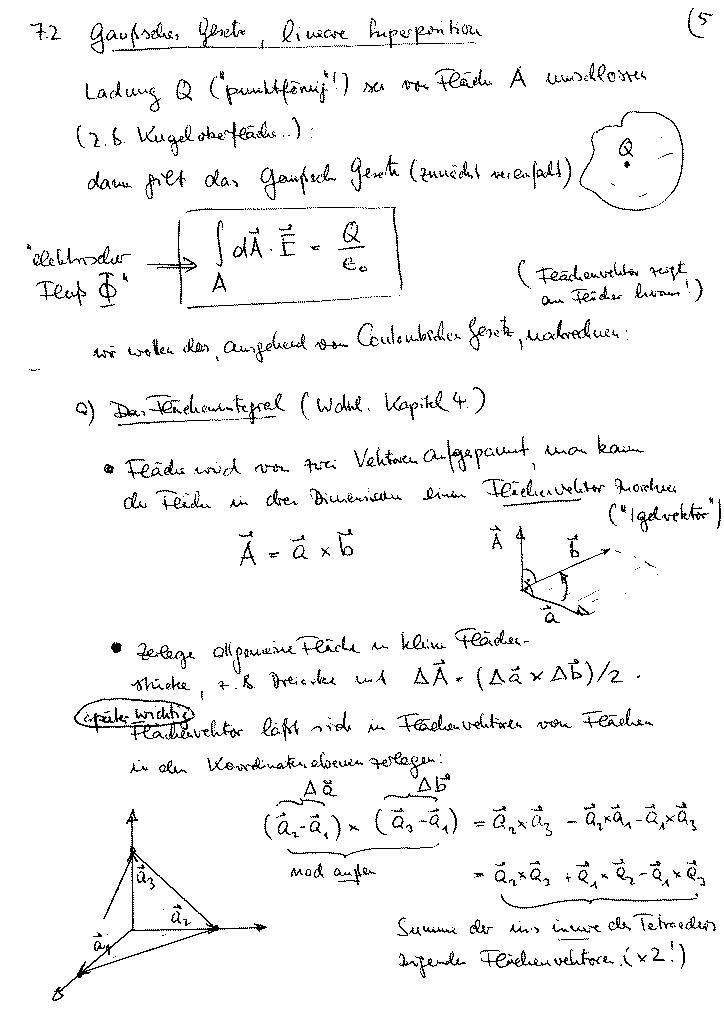 7.2 Gaußsches Gesetz, lineare Superposition
(5
Ladung Q ("punktförmig"!) sei von Fläche A umschlossen
(z.B. Kugeloberfläche..):
dann gilt das Gaußsche Gesetz (zunächst vereinfacht)
Q
"elektrischer
Fluß Φ"
∫_A dA⃗ · E⃗ = Q/ε₀
(Flächenvektor zeigt
am Fläche heraus!)
wir wollen dies, ausgehend vom Coulombschen Gesetz, nachrechnen:
a) Das Flächenintegral (Wdhl. Kapitel 4.)
• Fläche wird von zwei Vektoren aufgespannt, man kann
der Fläche in drei Dimensionen einen Flächenvektor zuordnen
("Igelvektor")
A⃗ = a⃗ × b⃗
A⃗ b⃗
a⃗
• Zerlege allgemeine Fläche in kleine Flächen-
stücke, z.B. Dreiecke mit ΔA⃗ = (Δa⃗ × Δb⃗)/2.
später wichtig
Flächenvektor läßt sich in Flächenvektoren von Flächen
in den Koordinatenebenen zerlegen:
Δa⃗ Δb⃗
(a⃗₂-a⃗₁) × (a⃗₃-a⃗₁) = a⃗₂×a⃗₃ - a⃗₂×a⃗₁ - a⃗₁×a⃗₃
nach außen
= a⃗₂×a⃗₃ + a⃗₁×a⃗₂ - a⃗₁×a⃗₃
a⃗₃
a⃗₂
a⃗₁
Summe der ins innere des Tetraeders
zeigenden Flächenvektoren (×2!)